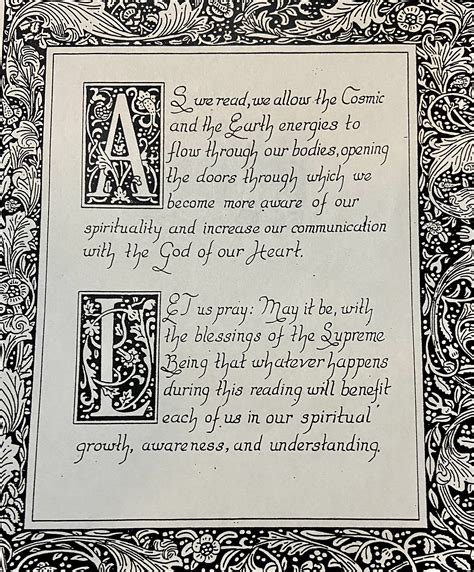 AS we read, we allow the Cosmic
and the Earth energies to
flow through our bodies, opening
the doors through which we
become more aware of our
spirituality and increase our communication
with the God of our Heart.
LET us pray: May it be, with
the blessings of the Supreme
Being that whatever happens
during this reading will benefit
each of us in our spiritual
growth, awareness, and understanding.